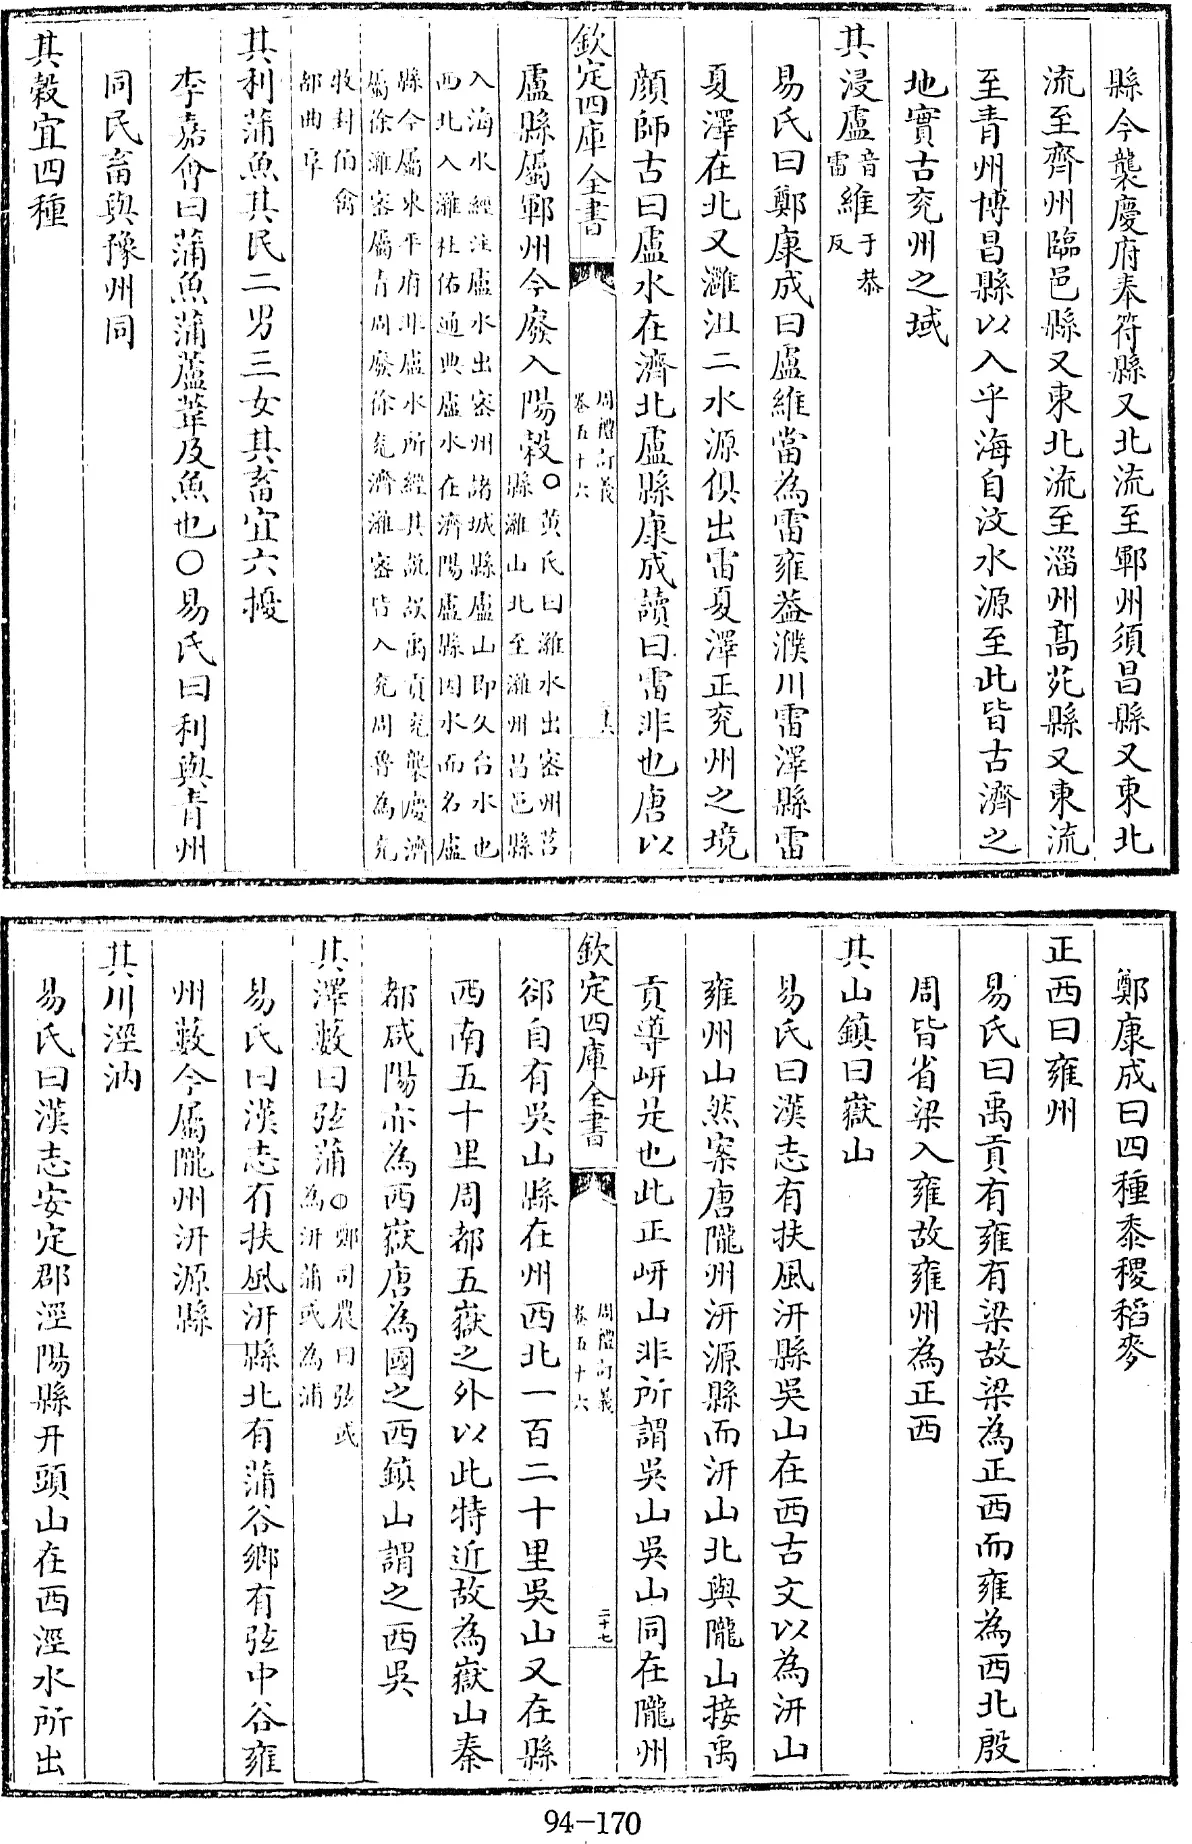 縣今襲慶府奉符縣又北流至鄆州須昌縣又東北
流至齊州臨邑縣又東北流至淄州髙苑縣又東流
至青州博昌縣以入乎海自汶水源至此皆古濟之
地實古兖州之域
其浸盧音雷維于恭反
易氏曰鄭康成曰盧維當為雷雍葢濮川雷澤縣雷
夏澤在北又灉沮二水源俱出雷夏澤正兖州之境
顔師古曰盧水在濟北盧縣康成讀曰雷非也唐以
欽定四庫全書 周禮訂義 卷五十六
盧縣屬鄆州今廢入陽穀○黄氏曰濰水出密州莒
縣濰山北至濰州昌邑縣
入海水經注盧水出密州諸城縣盧山即久台水也
西北入濰杜佑通典盧水在濟陽盧縣因水而名盧
縣今屬東平府非盧水所經其説故禹貢兖襲慶濟
屬徐濰密屬青周廢徐兖濟濰密皆入兖周魯為兖
牧封伯禽
都曲阜
其利蒲魚其民二男三女其畜宜六擾
李嘉㑹曰蒲魚蒲蘆葦及魚也○易氏曰利與青州
同民畜與豫州同
其穀宜四種
鄭康成曰四種黍稷稻麥
正西曰雍州
易氏曰禹貢有雍有梁故梁為正西而雍為西北殷
周皆省梁入雍故雍州為正西
其山鎮曰嶽山
易氏曰漢志有扶風汧縣吳山在西古文以為汧山
雍州山然案唐隴州汧源縣而汧山北與隴山接禹
貢導岍是也此正岍山非所謂吳山吳山同在隴州
欽定四庫全書 周禮訂義 卷五十六 二十七
郤自有吳山縣在州西北一百二十里吳山又在縣
西南五十里周都五嶽之外以此特近故為嶽山秦
都咸陽亦為西嶽唐為國之西鎮山謂之西吳
其澤藪曰弦蒲○鄭司農曰弦或
為汧蒲或為浦
易氏曰漢志右扶風汧縣北有蒲谷鄉有弦中谷雍
州藪今屬隴州汧源縣
其川涇汭
易氏曰漢志安定郡涇陽縣幵頭山在西涇水所出
94-170